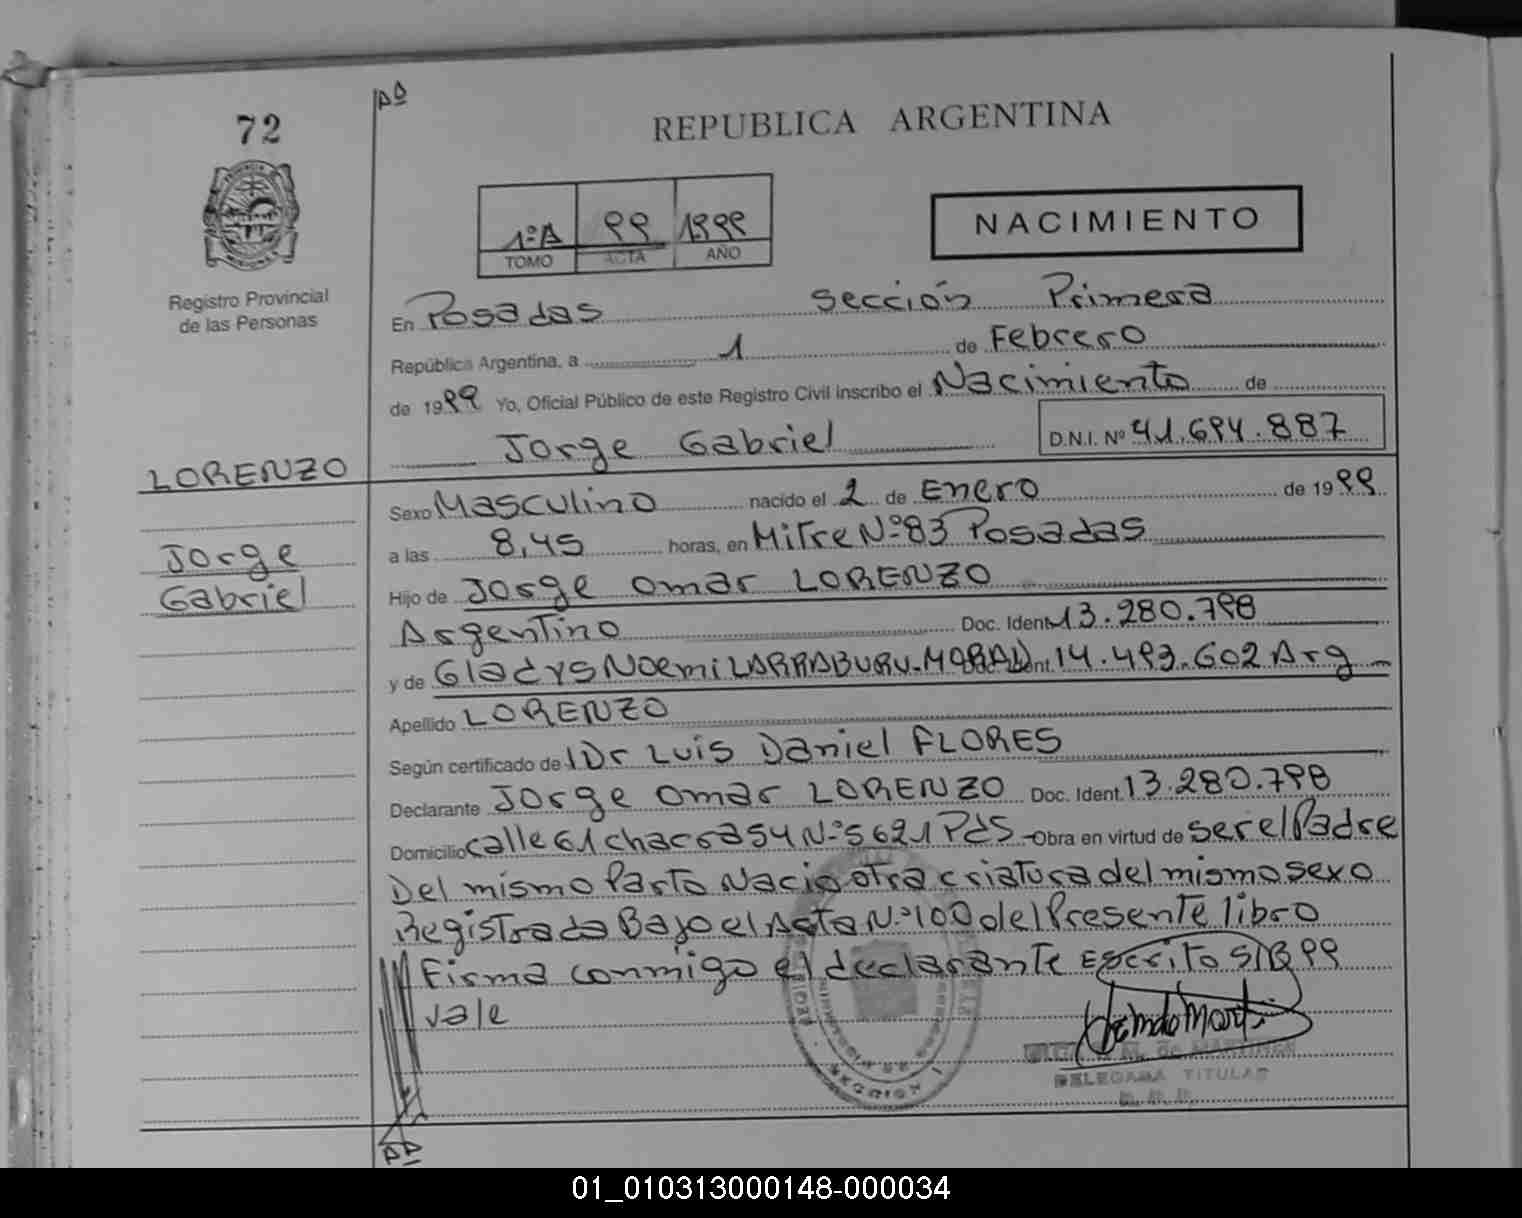 72
Aº
REPUBLICA ARGENTINA
1ºA 99 1999
TOMO ACTA AÑO
NACIMIENTO
Registro Provincial
de las Personas
En Posadas Sección Primera
República Argentina, a 1 de Febrero
de 1999 Yo, Oficial Público de este Registro Civil inscribo el Nacimiento de
Jorge Gabriel D.N.I. Nº 41.694.887
LORENZO
Jorge
Gabriel
Sexo Masculino nacido el 2 de Enero de 1999
a las 8,45 horas, en Mitre Nº 83 Posadas
Hijo de Jorge Omar LORENZO
Argentino Doc. Ident. 13.280.798
y de Gladys Noemi LARRABURU-MORAN 14.493.602 Arg
Apellido LORENZO
Según certificado de l Dr Luis Daniel FLORES
Declarante Jorge Omar LORENZO Doc. Ident. 13.280.798
Domicilio calle 61 chacra 54 Nº 5621 Pds - Obra en virtud de ser el Padre
Del mismo Parto Nacio otra criatura del mismo sexo
Registrada Bajo el Acta Nº 100 del Presente libro
Firma conmigo el declarante Escrito S/B 99
vale
SECCION 1
de MARTINEZ
DELEGADA TITULAR
01_010313000148-000034